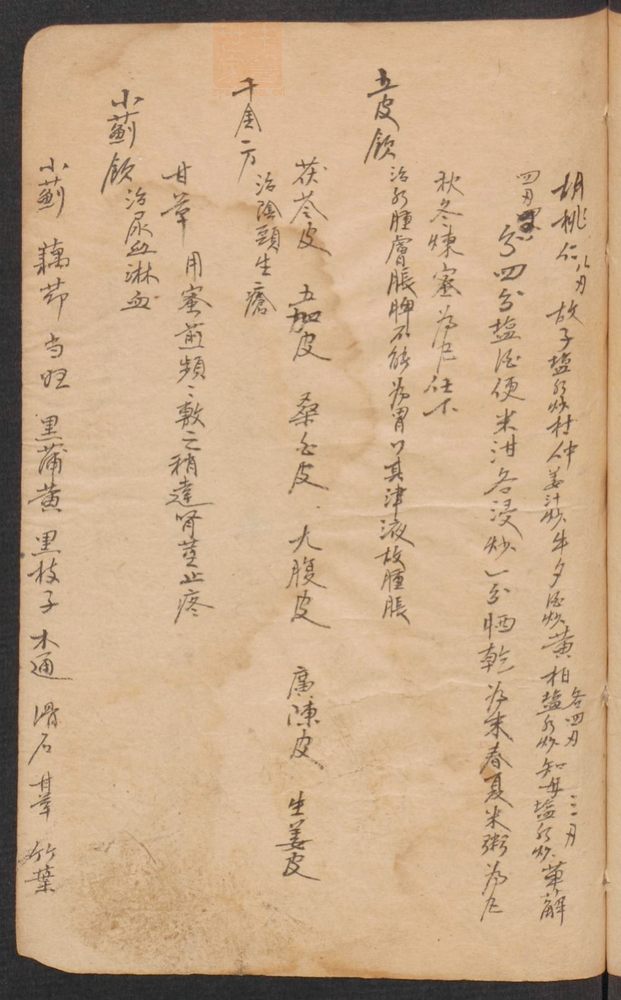 胡桃仁八刄 故子塩水炒 杜仲姜汁炒 牛夕酒炒 黄柏塩水炒 知母塩水炒 萆薢
各四刄 三刄
四刄 分四分塩酒便米泔各浸炒一分晒乾為末春夏米粥為尼
秋冬煉蜜為尼仕下
五皮飲
治水腫膚脹脾不能為胃以其津液故腫脹
茯苓皮 五加皮 桑白皮 大腹皮 廣陳皮 生姜皮
千金方
治陰頸生瘡
甘草 用蜜煎頻〻敷之稍達腎莖止疼
小薊飲
治尿血淋血
小薊 藕節 当旺 黒蒲黄 黒枝子 木通 滑石 甘草 竹葉